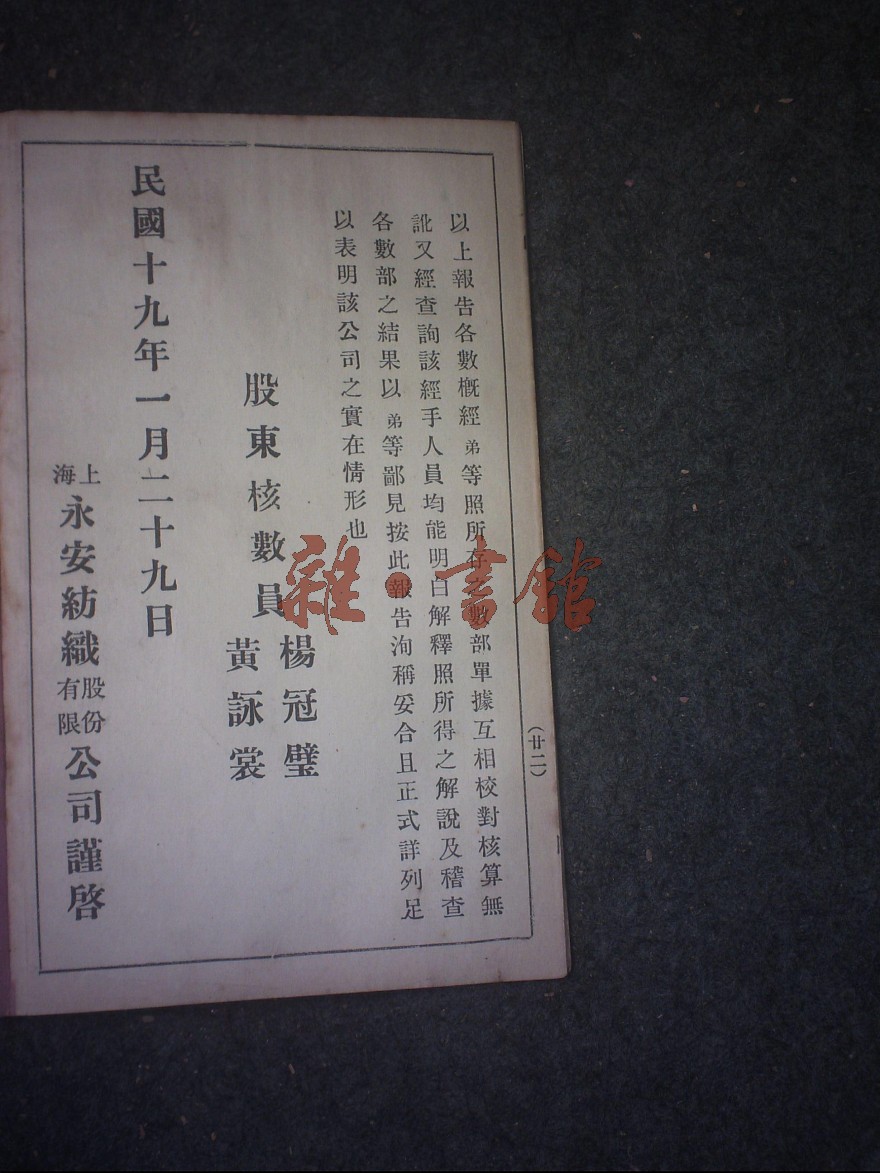 以上報告各數概經弟等照所存之數部單據互相校對核算無
訛又經查詢該經手人員均能明白解釋照所得之解說及稽查
各數部之結果以弟等鄙見按此報告洵稱妥合且正式詳列足
以表明該公司之實在情形也
股東核數員
楊冠璧
黃詠裳
民國十九年一月二十九日
上海永安紡織股份有限公司謹啓
（廿二）
雜·書館